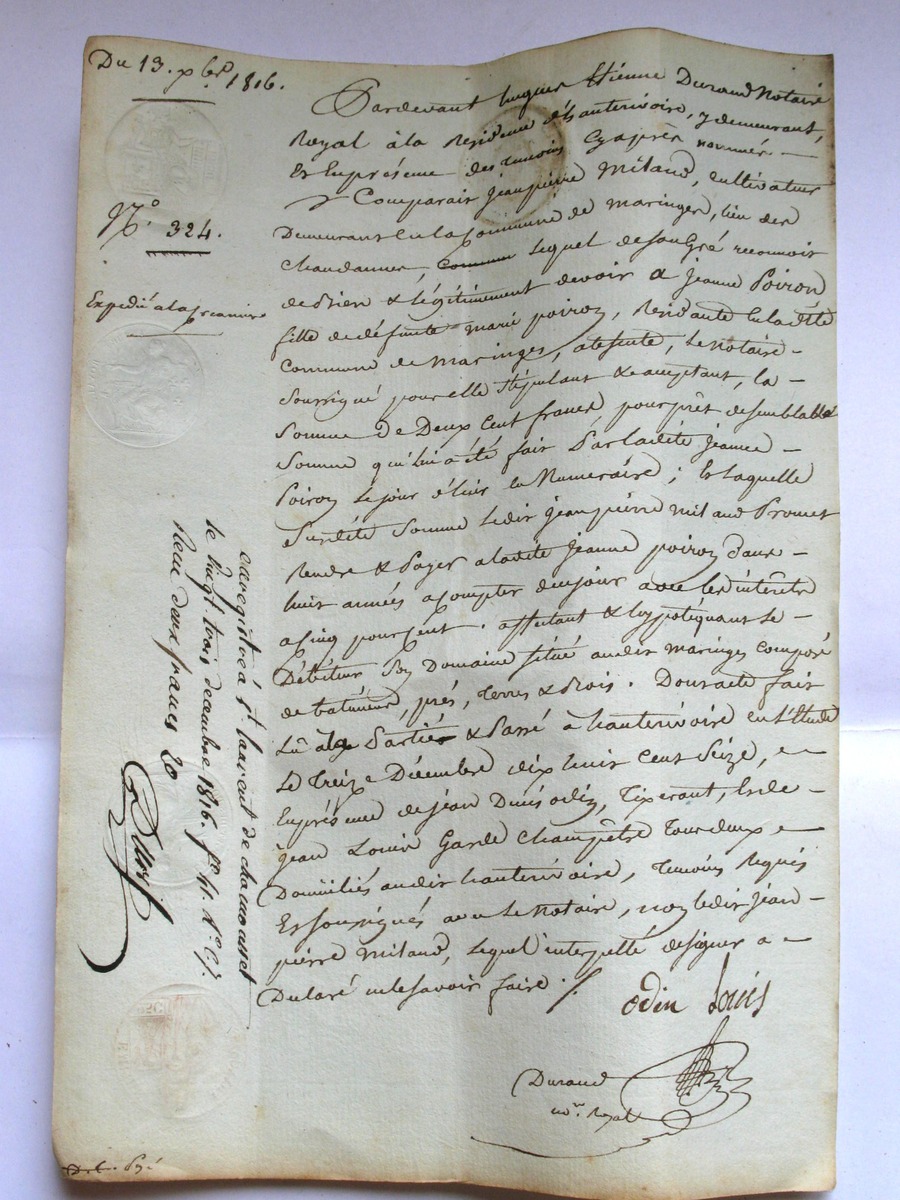 Du 13. xbre. 1816.
N° 324.
Expédié à la créancière
enregistré à St. laurent de chamousset
le vingt trois decembre 1816. f° 51. v° c. 7.
reçu deux francs 20
Pardevant hugues Etienne Durand Notaire
Royal à la Residence d'hauterivoire, y demeurant,
Et En présence des temoins Cy après nommés —
Comparait Jean pierre Milaud, cultivateur
Demeurant en la Commune de Maringes, lieu des
Chaudannes, lequel de son Gré reconnoit
de Bien & légitimement devoir a Jeanne Poiron
fille de défunte marie poiron, Residante En ladite
Commune de Maringes, absente, le Notaire —
Soussigné pour elle stipulant & acceptant, la —
Somme de Deux Cent francs pour prêt de semblable
Somme qui lui a été fait Par ladite Jeanne —
Poiron le jour d'hier en Numeraire ; Et laquelle
Susdite Somme ledit Jean pierre Milaud Promet
Rendre & Payer a ladite Jeanne poiron dans —
huit années a compter de ce jour avec les intérêts
a Cinq pour Cent. affectant & hypotéquant le —
Débiteur Son Domaine situé audit Maringes Composé
de batiments, prés, Terres & Bois. Dont acte fait
Lû aux Parties & Passé à hauterivoire en l'Etude
Le Treize Décembre dix huit Cent Seize, —
En présence de Jean Denis odin, Tixerant, Et de —
Jean Louis Garde Champêtre Tous deux —
Domiciliés audit hauterivoire, Temoins Requis
Et soussignés avec le Notaire, non ledit Jean —
pierre Milaud, lequel interpellé de signer a —
Declaré ne le savoir faire. /.
odin Louis
Durand
no.re Royal